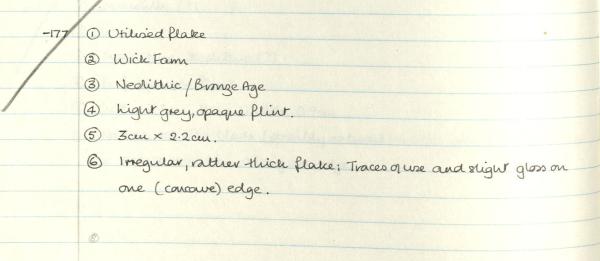 -177 ① Utilised flake
② Wick Farm
③ Neolithic / Bronze Age
④ Light grey, opaque flint.
⑤ 3cm × 2.2cm.
⑥ Irregular, rather thick flake; Traces of use and slight gloss on
one (concave) edge.
⑧